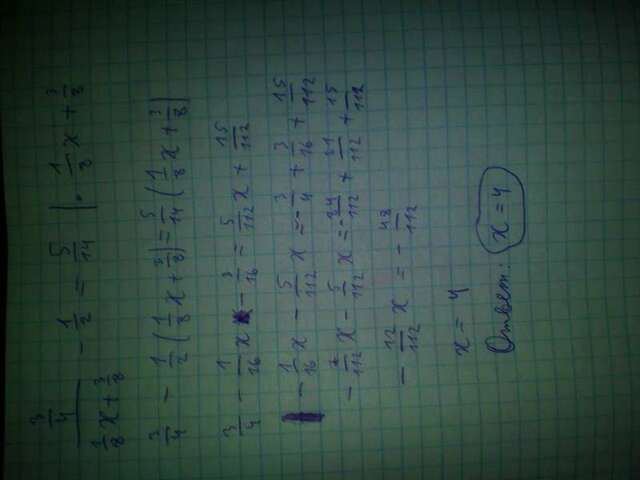 (3/4)/(1/8 x + 3/8) - 1/2 = 5/14 | · 1/8 x + 3/8
3/4 - 1/2 (1/8 x + 3/8) = 5/14 (1/8 x + 3/8)
3/4 - 1/16 x - 3/16 = 5/112 x + 15/112
- 1/16 x - 5/112 x = - 3/4 + 3/16 + 15/112
- 7/112 x - 5/112 x = - 84/112 + 21/112 + 15/112
- 12/112 x = - 48/112
x = 4
Ответ: x = 4